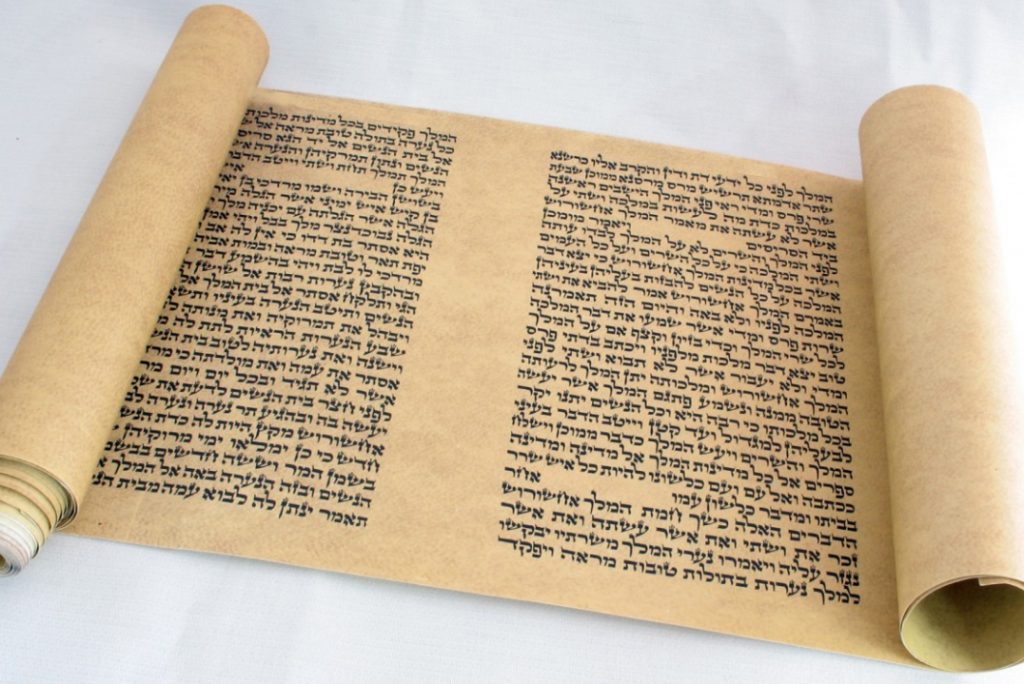 המלך לפני כל ידעי דת ודין והקרב אליו כרשנא
שתר אדמתא תרשיש מרס מרסנא ממוכן שבעת
שרי פרס ומדי ראי פני המלך הישבים ראשנה
במלכות כדת מה לעשות במלכה ושתי על
אשר לא עשתה את מאמר המלך אחשורוש
ביד הסריסים ויאמר מומכן
לפני המלך והשרים לא על המלך לבדו עותה
ושתי המלכה כי על כל השרים ועל כל העמים
אשר בכל מדינות המלך אחשורוש כי יצא דבר
המלכה על כל הנשים להבזות בעליהן בעיניהן
באמרם המלך אחשורוש אמר להביא את ושתי
המלכה לפניו ולא באה והיום הזה תאמרנה
שרות פרס ומדי אשר שמעו את דבר המלכה
לכל שרי המלך וכדי בזיון וקצף אם על המלך
טוב יצא דבר מלכות מלפניו ויכתב בדתי פרס
ומדי ולא יעבור אשר לא תבוא ושתי לפני
המלך אחשורוש ומלכותה יתן המלך לרעותה
הטובה ממנה ונשמע פתגם המלך אשר יעשה
בכל מלכותו כי רבה היא וכל הנשים יתנו יקר
לבעליהן למגדול ועד קטן וייטב הדבר בעיני
המלך והשרים ויעש המלך כדבר ממוכן וישלח
ספרים אל כל מדינות המלך אל מדינה ומדינה
ככתבה ואל עם ועם כלשונו להיות כל איש שרר
בביתו ומדבר כלשון עמו אחר
הדברים האלה כשך חמת המלך אחשורוש
זכר את ושתי ואת אשר עשתה ואת אשר
נגזר עליה ויאמרו נערי המלך משרתיו יבקשו
למלך נערות בתולות טובות מראה ויפקד
המלך פקידים בכל מדינות מלכותו
כל נערה בתולה טובת מראה אל
אל בית הנשים אל יד הגא סריס
הנשים ונתון תמרקיהן והנערה
המלך תמלך תחת ושתי וייטב הדבר
ויעש כן
הבירה ושמו מרדכי בן
בן קיש איש ימיני אשר הגלה
הגלה אשר הגלתה עם יכניה
הגלה נבוכדנצר מלך בבל ויהי אמן
היא אסתר בת דדו כי אין לה אב
יפת תאר וטובת מראה ובמות
מרדכי לו לבת ויהי בהשמע דבר
ובהקבץ נערות רבות אל שושן
הגי ותלקח אסתר אל בית המלך אל
הנשים ותיטב הנערה בעיניו
ויבהל את תמרוקיה ואת מנותה
שבע הנערות הראיות לתת לה
וישנה ואת נערותיה לטוב בית
אסתר את עמה ואת מולדתה כי
אשר לא תגיד ובכל יום ויום
לפני חצר בית הנשים לדעת את
יעשה בה ובהגיע תר נערה ונערה
אחשורוש מקץ היות לה כדת
חדש כי כן ימלאו ימי מרוקיהן
בשמן המר וששה חדשים
הנשים ובזה הנערה באה אל המלך
תאמר ינתן לה לבוא עמה מבית